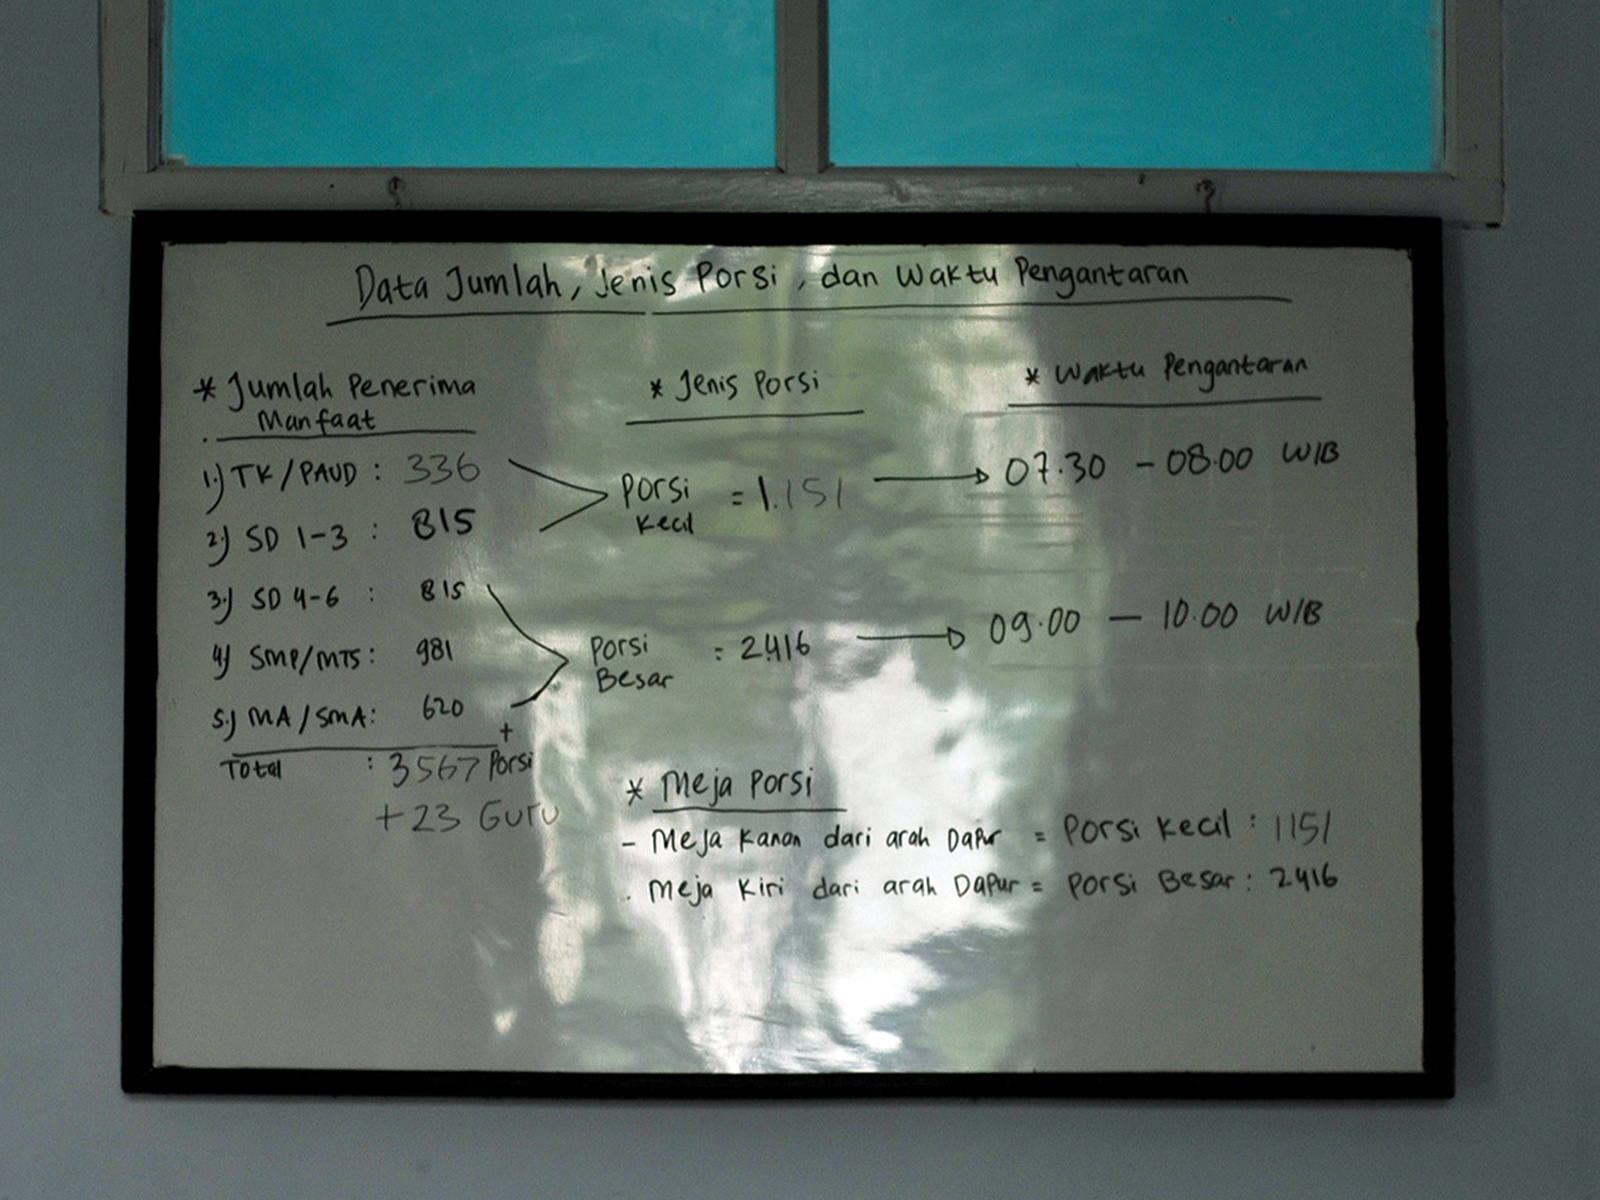 Data Jumlah, Jenis Porsi, dan Waktu Pengantaran
* Jumlah Penerima
Manfaat
1.) TK/PAUD : 336
2.) SD 1-3 : 815
3.) SD 4-6 : 815
4.) SMP/MTS : 981
5.) MA/SMA : 620
+
Total : 3567 Porsi
+23 Guru
* Jenis Porsi
Porsi Kecil = 1.151
Porsi Besar : 2.416
* Waktu Pengantaran
07.30 - 08.00 WIB
09.00 — 10.00 WIB
* Meja Porsi
- Meja Kanan dari arah Dapur = Porsi Kecil : 1151
. Meja Kiri dari arah Dapur = Porsi Besar : 2.416